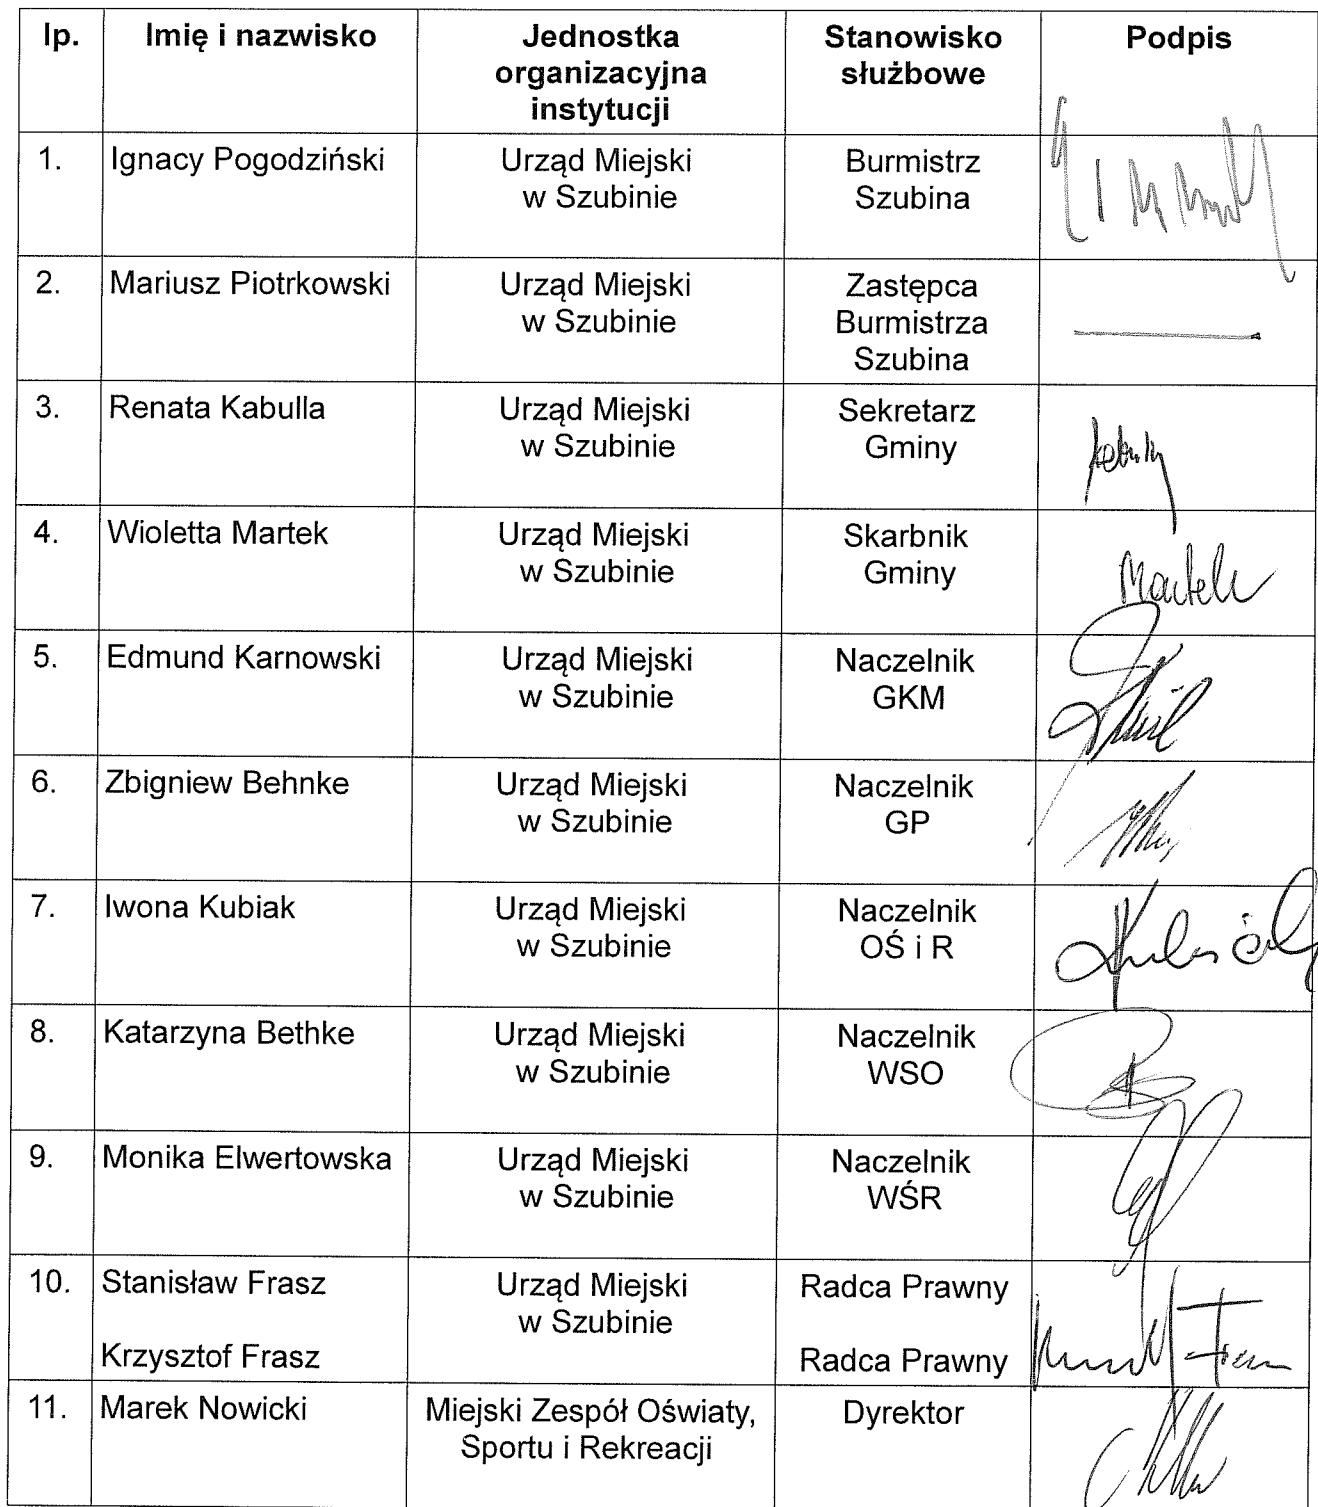 lp. Imię i nazwisko Jednostka organizacyjna instytucji Stanowisko służbowe Podpis
1. Ignacy Pogodziński Urząd Miejski w Szubinie Burmistrz Szubina
2. Mariusz Piotrkowski Urząd Miejski w Szubinie Zastępca Burmistrza Szubina
3. Renata Kabulla Urząd Miejski w Szubinie Sekretarz Gminy
4. Wioletta Martek Urząd Miejski w Szubinie Skarbnik Gminy Martek
5. Edmund Karnowski Urząd Miejski w Szubinie Naczelnik GKM
6. Zbigniew Behnke Urząd Miejski w Szubinie Naczelnik GP
7. Iwona Kubiak Urząd Miejski w Szubinie Naczelnik OŚ i R
8. Katarzyna Bethke Urząd Miejski w Szubinie Naczelnik WSO
9. Monika Elwertowska Urząd Miejski w Szubinie Naczelnik WŚR
10. Stanisław Frasz Urząd Miejski w Szubinie Radca Prawny
Krzysztof Frasz Radca Prawny
11. Marek Nowicki Miejski Zespół Oświaty, Sportu i Rekreacji Dyrektor